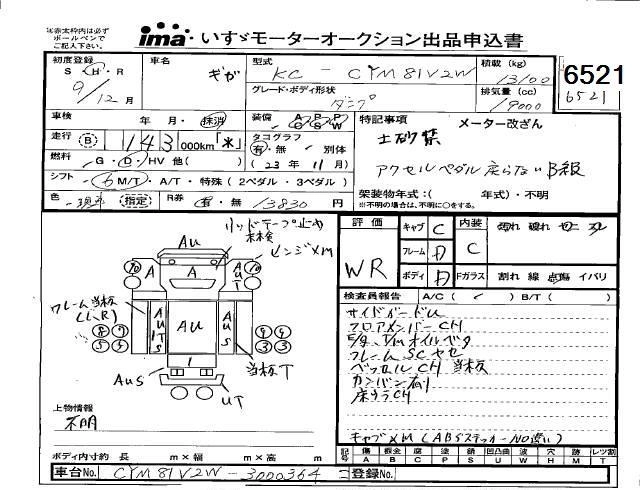 ※赤太枠内は必ず
ボールペンで
ご記入下さい。
ima いすゞモーターオークション出品申込書
6521
初度登録 S H R 9/12月
車名 ギガ
型式 KC-CYM81V2W
積載(kg) 13100
グレード・ボディ形状 ダンプ
排気量(cc) 19000
6521
車検 年・月・抹消
装備 A P P C S W
特記事項 メーター改ざん
走行 B 143 000km 米
タコグラフ 有・無 別体
土砂禁
燃料 G・D・HV 他( )
(23年11月)
アクセルペダル戻らない B級
シフト 6 M/T・A/T・特殊(2ペダル・3ペダル)
架装物年式:( 年式)・不明
※不明の場合は、不明に○をする。
色 指定 R券 有・無 13830円
評価 WR
キャブ C
フレーム D
ボディ D
内装 C
Fガラス 割れ 線 点傷 イバリ
検査員報告 A/C( ) B/T( )
リッドテープ止め
未検
ヒンジXM
AU
70 A A AU 70
フレーム当板
(L,R)
AUTS AU AUS
当板T
AUS
UT
サイドガードU
フロアメンバーCH
E/g、T/Mオイルベタ
フレームSCサビ
ベッセルCH 当板
カンバン有り
床ウラCH
キャブXM(ABSステッカーNO違い)
上物情報
不明
ボディ内寸約 長 m×幅 m×高 m
記号 傷 板金 腐 塗 錆 凹凸曲 波 穴 跡 レツ割
A B C P S U W H M T
車台No. CYM81V2W-3000364
登録No.